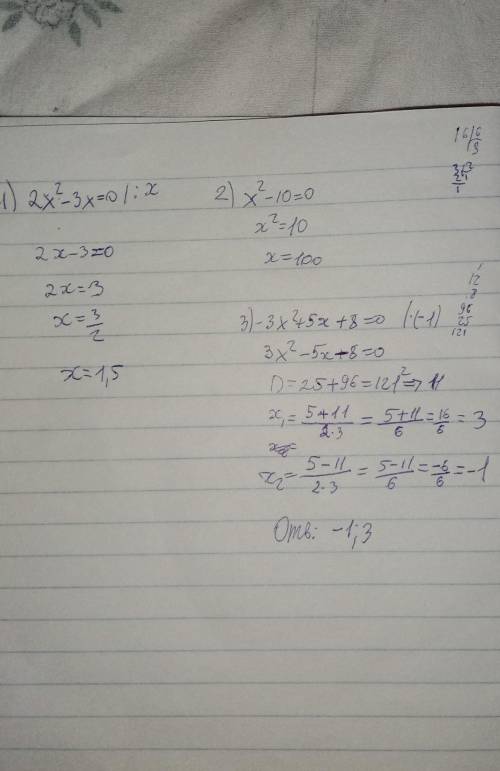 1) 2x²-3x=0 |:x
2x-3=0
2x=3
x=3/2
x=1,5
2) x²-10=0
x²=10
x=100
3) -3x²+5x+8=0 |·(-1)
3x²-5x-8=0
D=25+96=121²⇒11
x₁=5+11/2·3=5+11/6=16/6=3
x₂=5-11/2·3=5-11/6=-6/6=-1
Отв: -1;3
16|6
3
12
8
96
25
121